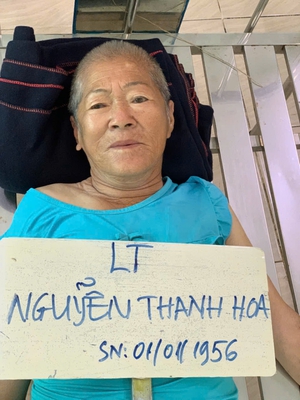 LT
NGUYỄN THANH HOA
SN: 01/01/1956